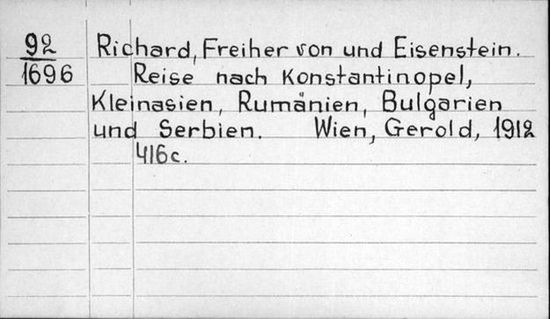 92
1696
Richard, Freiher von und Eisenstein.
Reise nach Konstantinopel,
Kleinasien, Rumänien, Bulgarien
und Serbien. Wien, Gerold, 1912
416c.